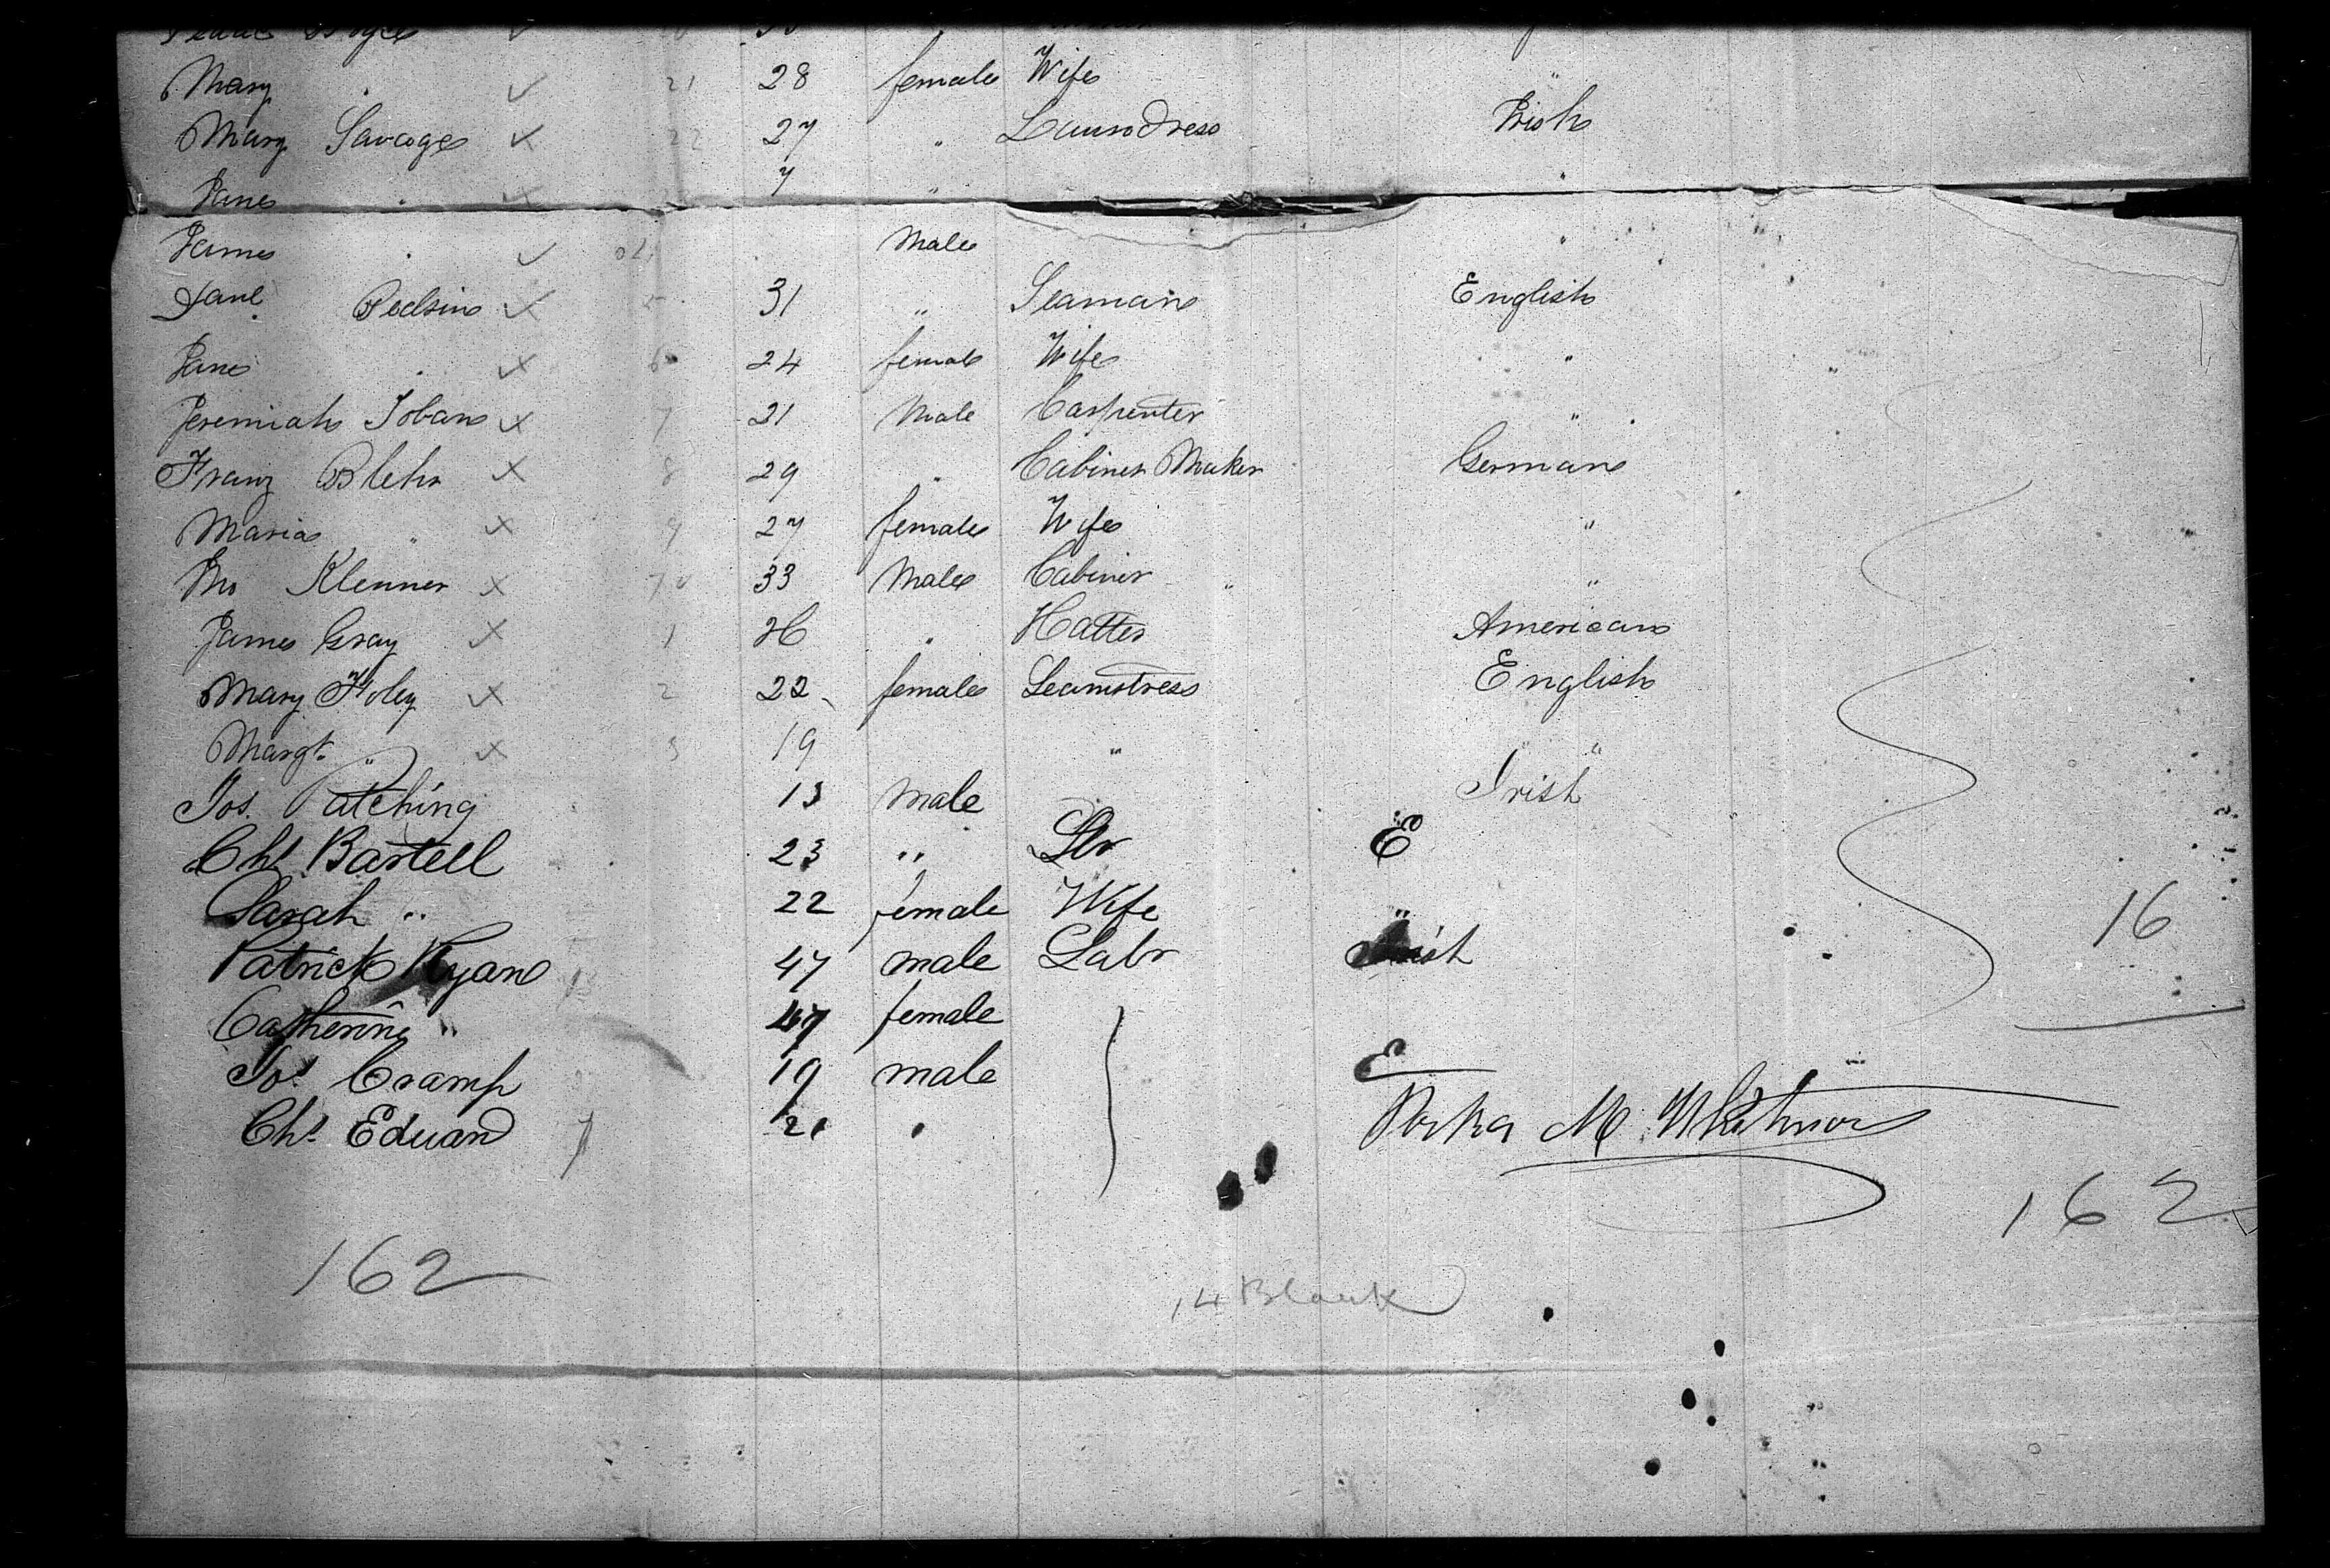 Mary " ✓ 21 28 female Wife "
Mary Savage ✓ 22 27 " Laundress Irish
Jane " 7 " "
James " ✓ Male "
Danl. ✓ 31 " Seaman English
Jane " ✓ 6 24 female Wife "
Jeremiah Toban ✓ 7 21 Male Carpenter "
Franz Blehr ✓ 8 29 " Cabinet Maker German
Maria " ✓ 9 27 female Wife "
Jno Klenner ✓ 33 Male Cabinet " "
James Gray ✓ 1 " Hatter American
Mary Foley ✓ 2 22 female Seamstress English
Margt. " ✓ 3 19 " "
Jos. Patching 13 male Irish
Chs Bartell 23 " E
Sarah " 22 female Wife "
Patrick Ryan 47 male Labr Irish
Catherine " 47 female
16
Jos. Cramp 19 male E
Chs Edward 21 "
M. Whitmore
162
162
14 Blank